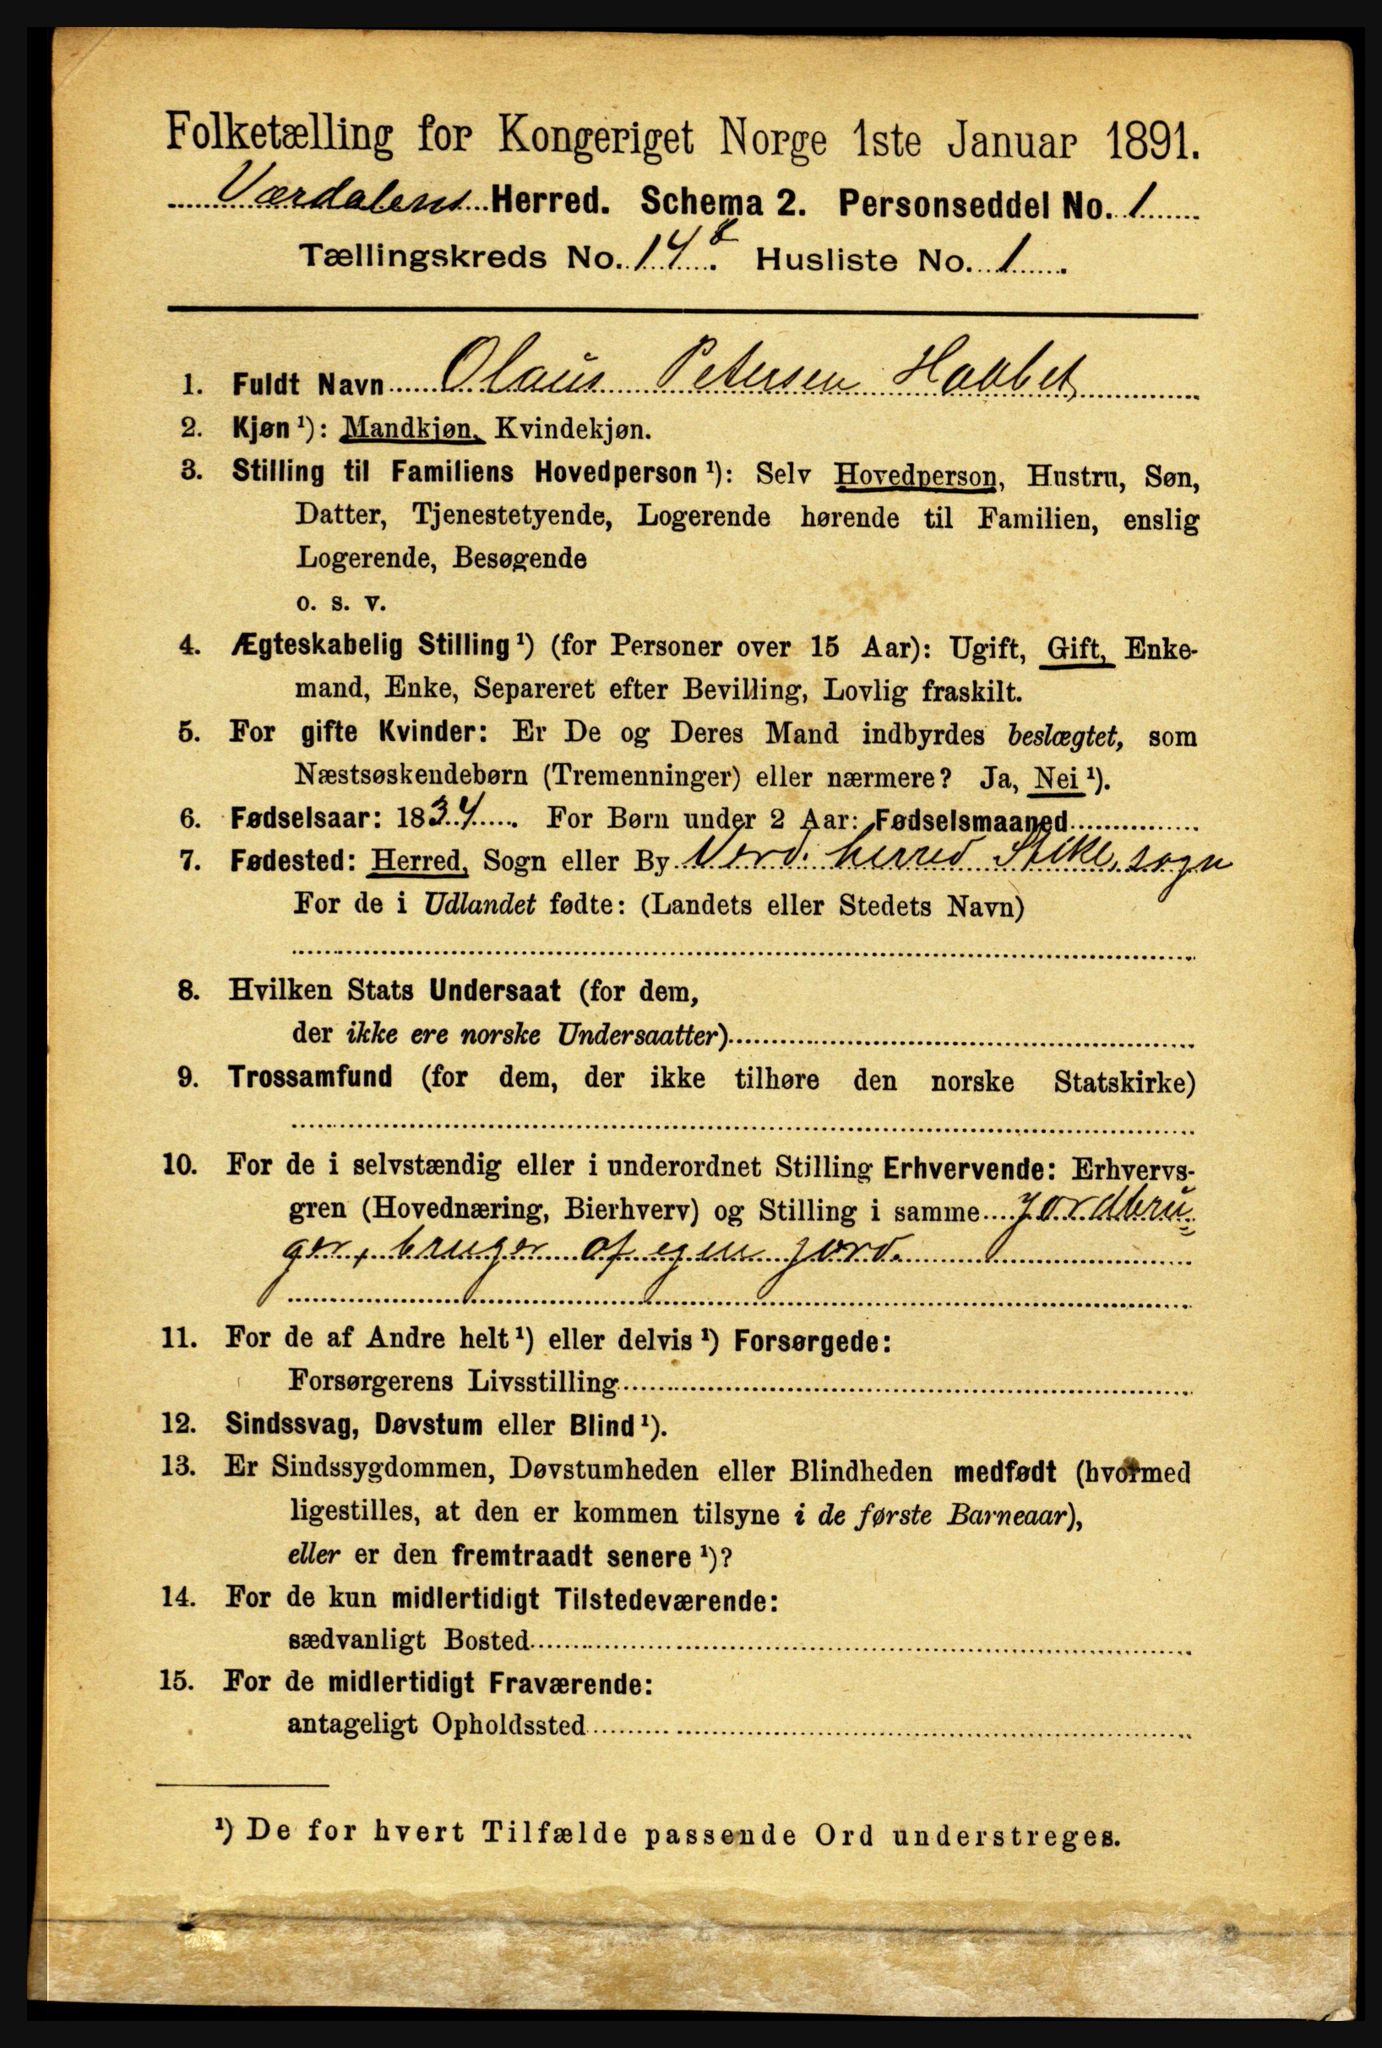 Folketælling for Kongeriget Norge 1ste Januar 1891.
Værdalens Herred. Schema 2. Personseddel No. 1
Tællingskreds No. 14 Husliste No. 1.
1. Fuldt Navn Olaus Petersen Haabet
2. Kjøn ¹): Mandkjøn, Kvindekjøn.
3. Stilling til Familiens Hovedperson ¹): Selv Hovedperson, Hustru, Søn,
Datter, Tjenestetyende, Logerende hørende til Familien, enslig
Logerende, Besøgende
o. s. v.
4. Ægteskabelig Stilling ¹) (for Personer over 15 Aar): Ugift, Gift, Enke-
mand, Enke, Separeret efter Bevilling, Lovlig fraskilt.
5. For gifte Kvinder: Er De og Deres Mand indbyrdes beslægtet, som
Næstsøskendebørn (Tremenninger) eller nærmere? Ja, Nei ¹).
6. Fødselsaar: 1834. For Børn under 2 Aar: Fødselsmaaned
7. Fødested: Herred, Sogn eller By Verd. herred Stikle, sogn
For de i Udlandet fødte: (Landets eller Stedets Navn)
8. Hvilken Stats Undersaat (for dem,
der ikke ere norske Undersaatter)
9. Trossamfund (for dem, der ikke tilhøre den norske Statskirke)
10. For de i selvstændig eller i underordnet Stilling Erhvervende: Erhvervs-
gren (Hovednæring, Bierhverv) og Stilling i samme Jordbru-
ger, bruger af egen jord.
11. For de af Andre helt ¹) eller delvis ¹) Forsørgede:
Forsørgerens Livsstilling
12. Sindssvag, Døvstum eller Blind ¹).
13. Er Sindssygdommen, Døvstumheden eller Blindheden medfødt (hvormed
ligestilles, at den er kommen tilsyne i de første Barneaar),
eller er den fremtraadt senere ¹)?
14. For de kun midlertidigt Tilstedeværende:
sædvanligt Bosted
15. For de midlertidigt Fraværende:
antageligt Opholdssted
¹) De for hvert Tilfælde passende Ord understreges.